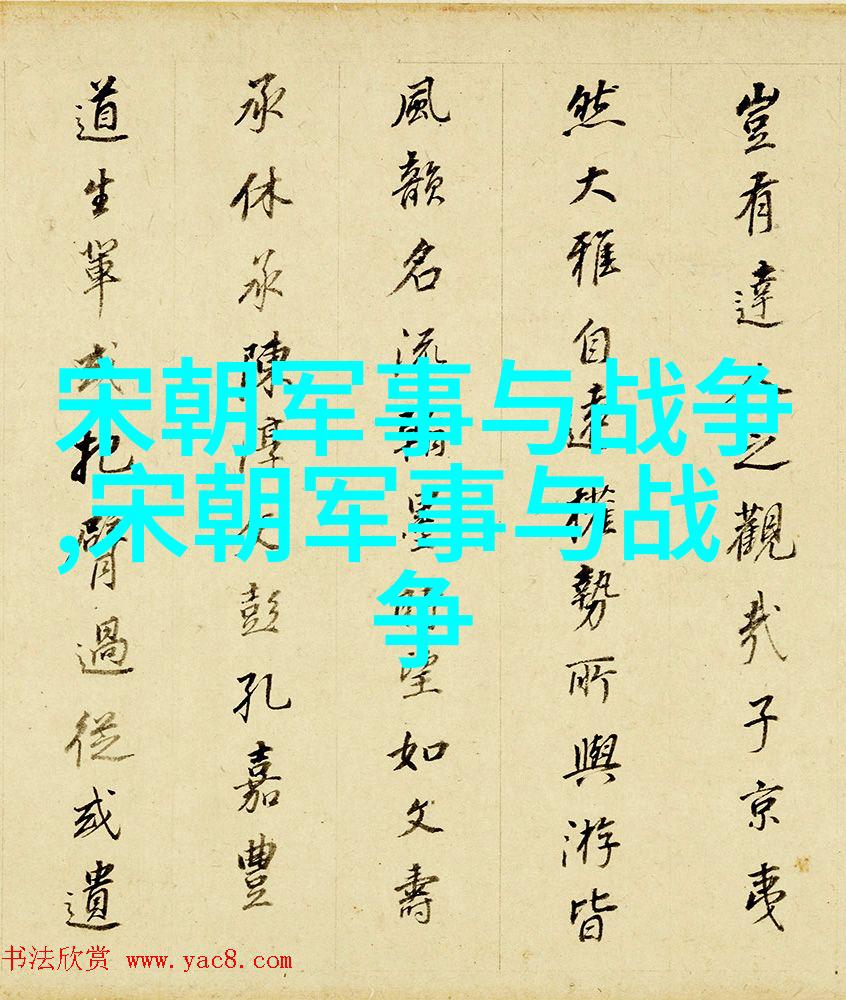 豈有達人之觀哉子京夷
然大雅自遠權勢所與游皆
風韻名流翰墨時望如文壽
承休承陳淳父彭孔嘉豐
道生輩或把臂過從或遺
宋朝军事与战争
,宋朝军事与战
争
书法欣赏 www.yac8.com